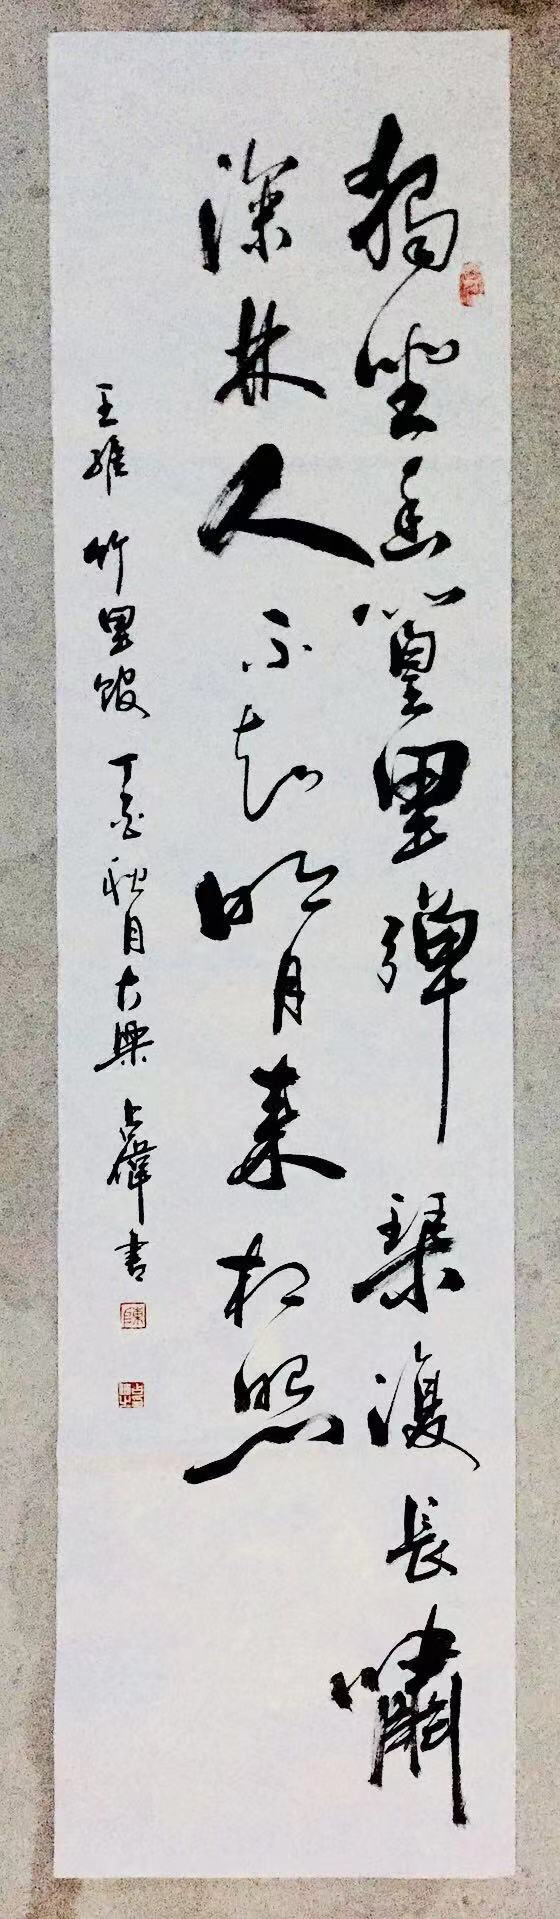 獨坐幽篁里彈琴復長嘯
深林人不知明月来相照
王維竹里館丁酉秋月大興占輝書